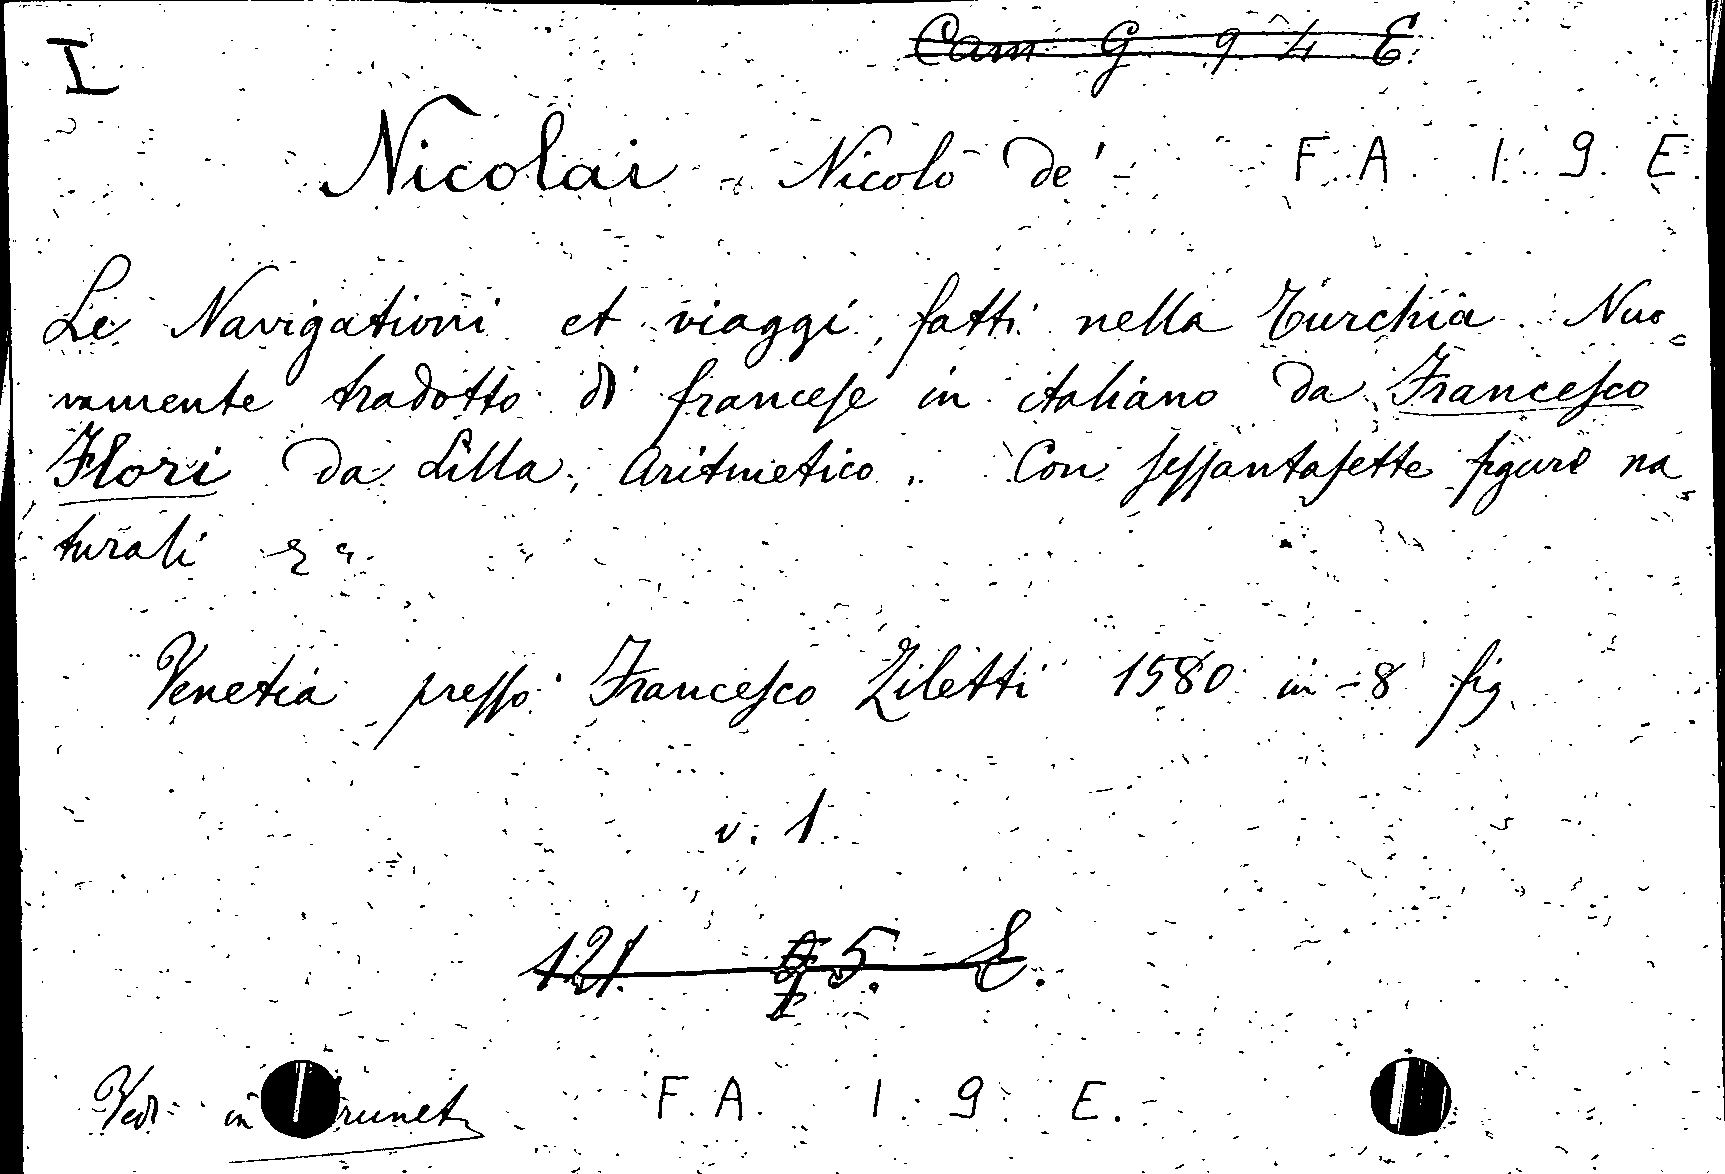 I
Cam G 9 4 E.
Nicolai Nicolò de' F. A. 1. 9. E.
Le Navigationi et viaggi, fatti nella Turchia. Nuo=
vamente tradotto di francese in italiano da Francesco
Flori da Lilla, Aritmetico. Con sessantasette figure na=
turali
Venetia presso Francesco Ziletti 1580 in-8 fig.
v. 1.
121. 5. E.
Vedi in Brunet F. A. 1. 9. E.